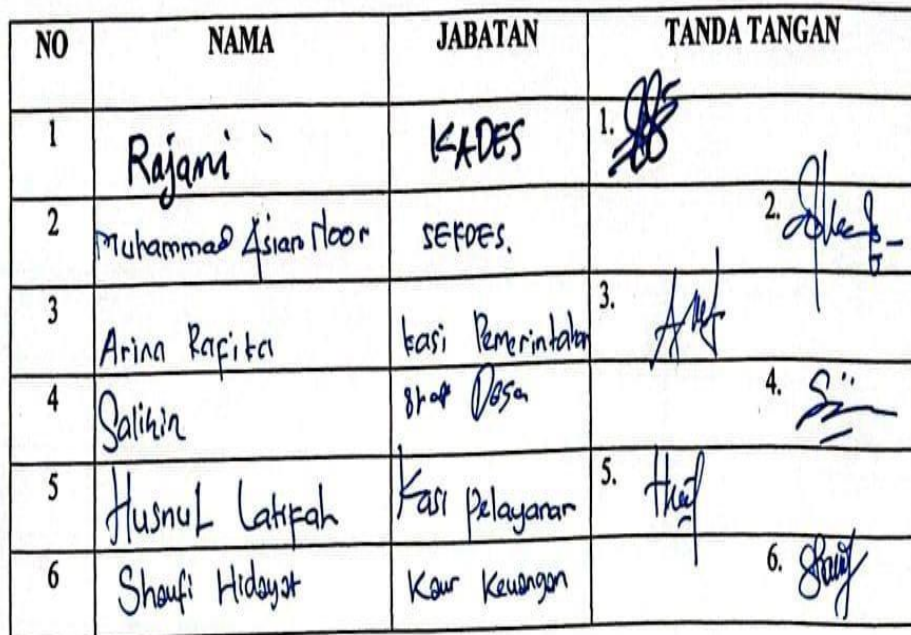 NO NAMA JABATAN TANDA TANGAN
1 Rajani KADES 1.
2 Muhammad Asian Noor SEKDES. 2.
3 Arina Rafika kasi Pemerintahan 3.
4 Salihin Staf Desa 4.
5 Husnul Latifah Kasi Pelayanan 5.
6 Shaufi Hidayat Kaur Keuangan 6.